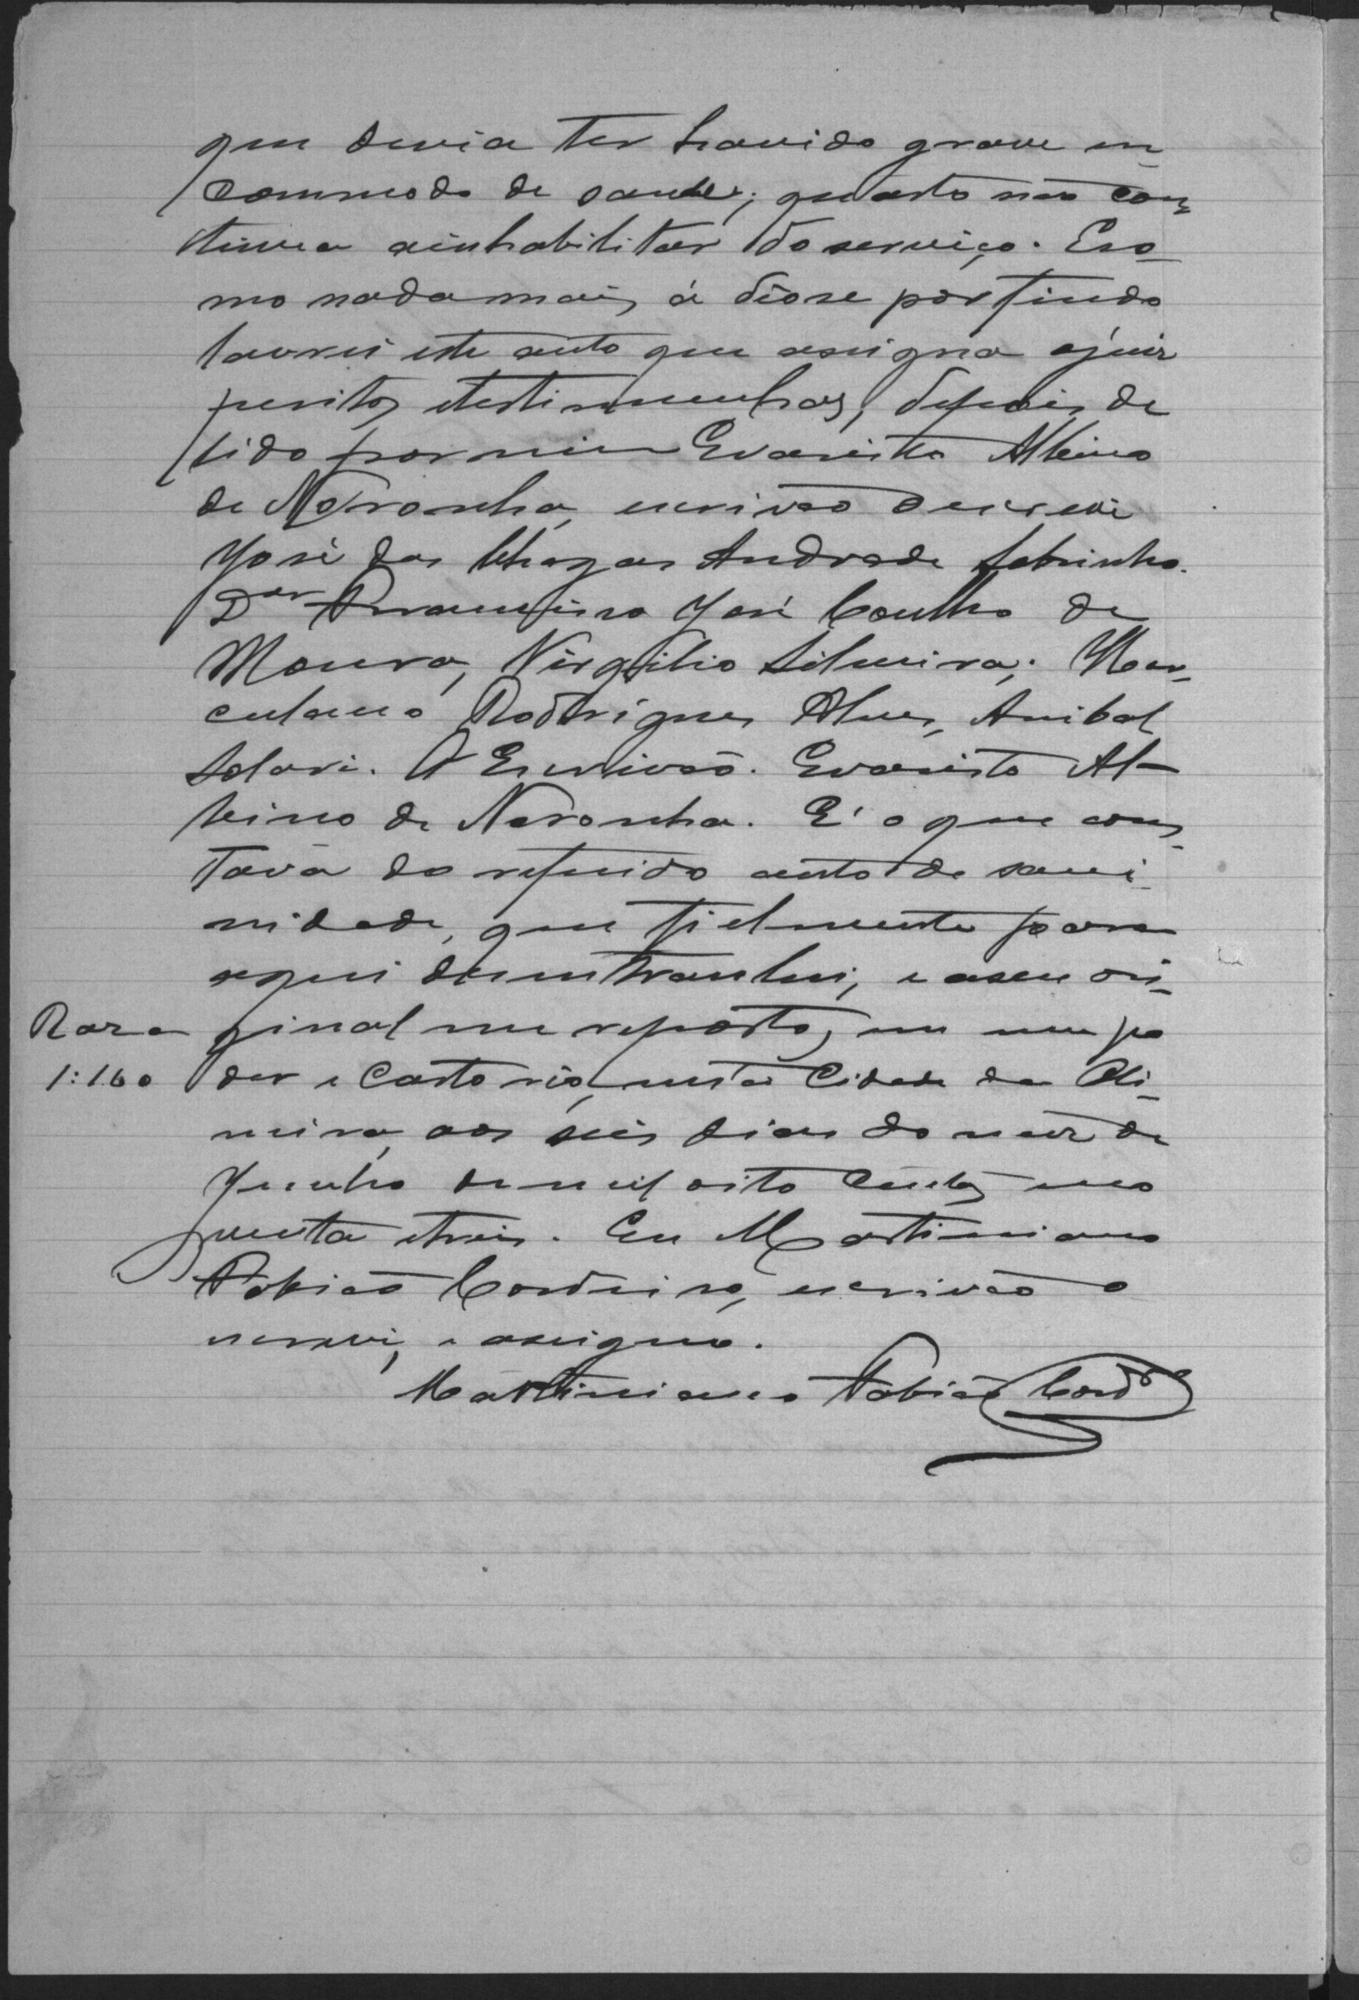 que devia ter havido grave in
commodo de saude; quarto não con-
tinua a inhabilitar do serviço. Eco-
mo nada mais á disse por findo
lavrei este auto que assigna o juiz
peritos e testimunhas, depois de
lido por mim Evaristo Albino
de Noronha, escrivão o escrevi
José das Chagas Andrade Sobrinho.
Dor Francisco José Coelho de
Moura, Virgilio Silveira, Her-
culano Rodrigues Alves, Anibal
Solari. O Escrivão. Evaristo Al-
bino de Noronha. E' o que cons-
tava do referido auto de sani-
nidade, que fielmente para
aqui bem trasladei, e a seu ori-
Raza ginal me reporto, em meu po
1:160 der e Cartorio, nesta Cidade da Oli-
veira, aos seis dias do mez de
Junho de mil oito centos eno
venta e tres. Eu Martiniano
Tobias Cordeiro, escrivão o
escrevi, e assigno.
Martiniano Tobias Cord.o